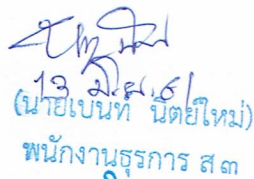 13 มิ.ย. 61
(นายเบนท์ นิตย์ใหม่)
พนักงานธุรการ ส ๓